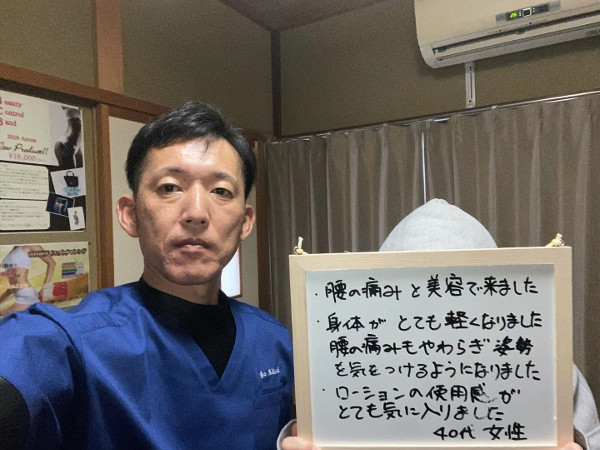 Beauty
Control
Band
New Produce!!
¥18,000
・腰の痛みと美容で来ました
・身体がとても軽くなりました
腰の痛みもやわらぎ姿勢
を気をつけるようになりました
・ローションの使用感が
とても気に入りました
40代 女性